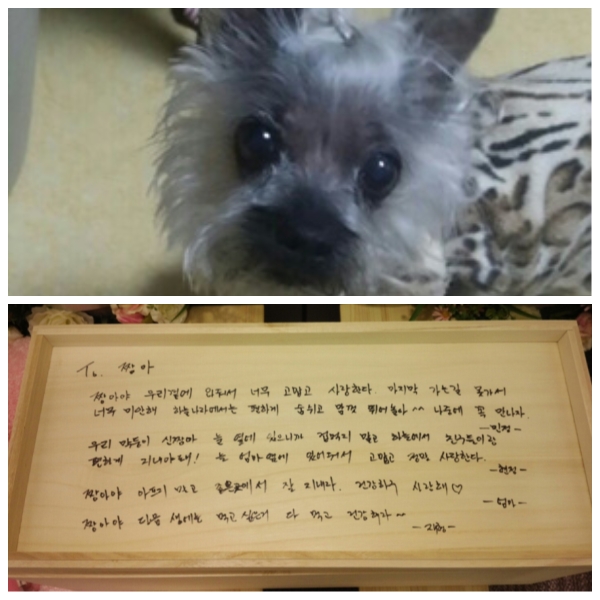 To. 짱아
짱아야 우리곁에 있어줘서 너무 고맙고 사랑한다. 마지막 가는길 못가서
너무 미안해 하늘나라에서는 편하게 숨쉬고 맘껏 뛰어놀아 ^^ 나중에 꼭 만나자.
우리 막둥이 신짱아 늘 옆에 있으니까 겁먹지 말고 하늘에서 친구들이랑
편하게 지내야해! 늘 엄마 옆에 있어줘서 고맙고 정말 사랑한다.
짱아야 아프지 말고 좋은곳에서 잘 지내라. 건강하구 사랑해♡
- 엄마 -
짱아야 다음 생에는 먹고 싶은거 다 먹고 건강하자~